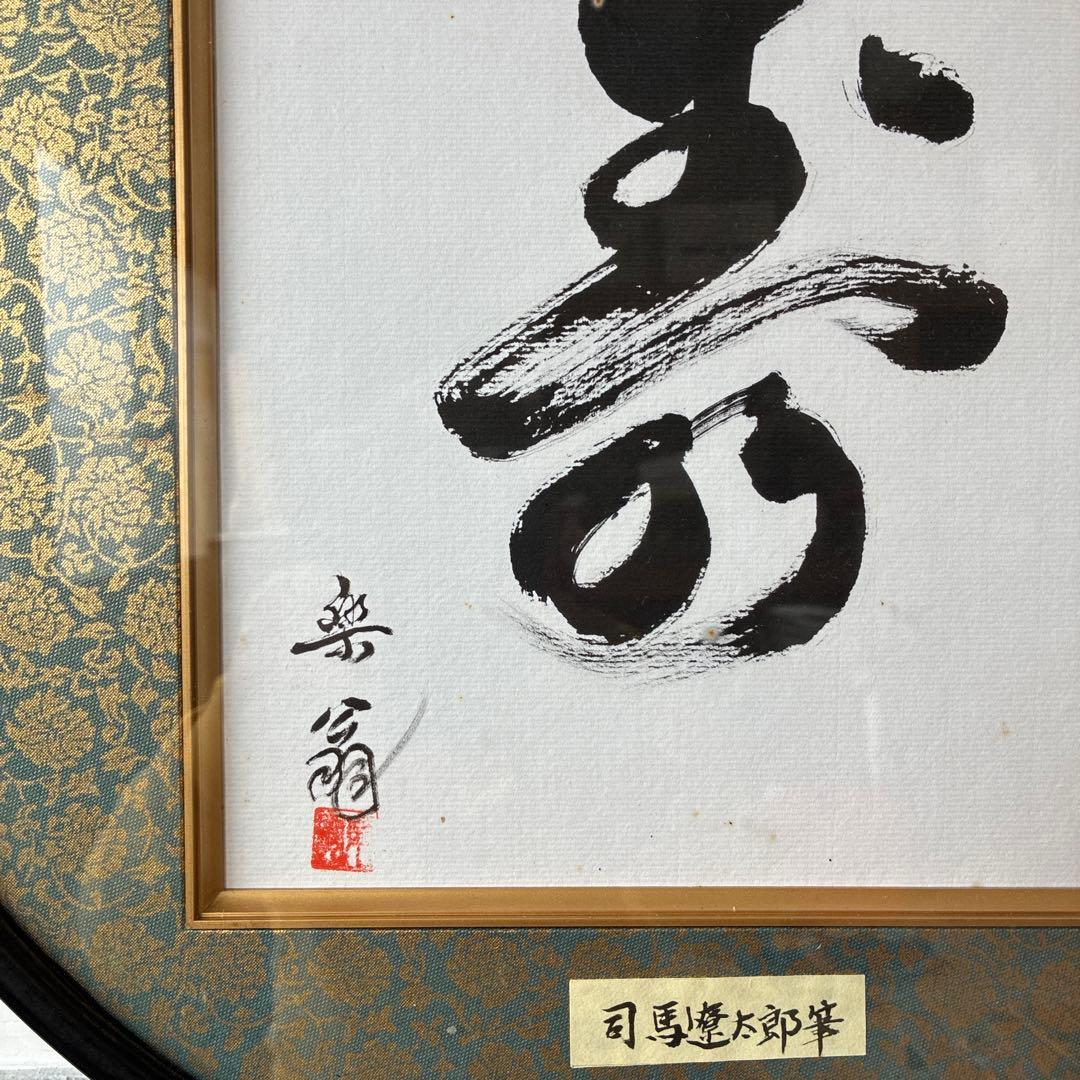 寿
楽
翁
司馬遼太郎筆